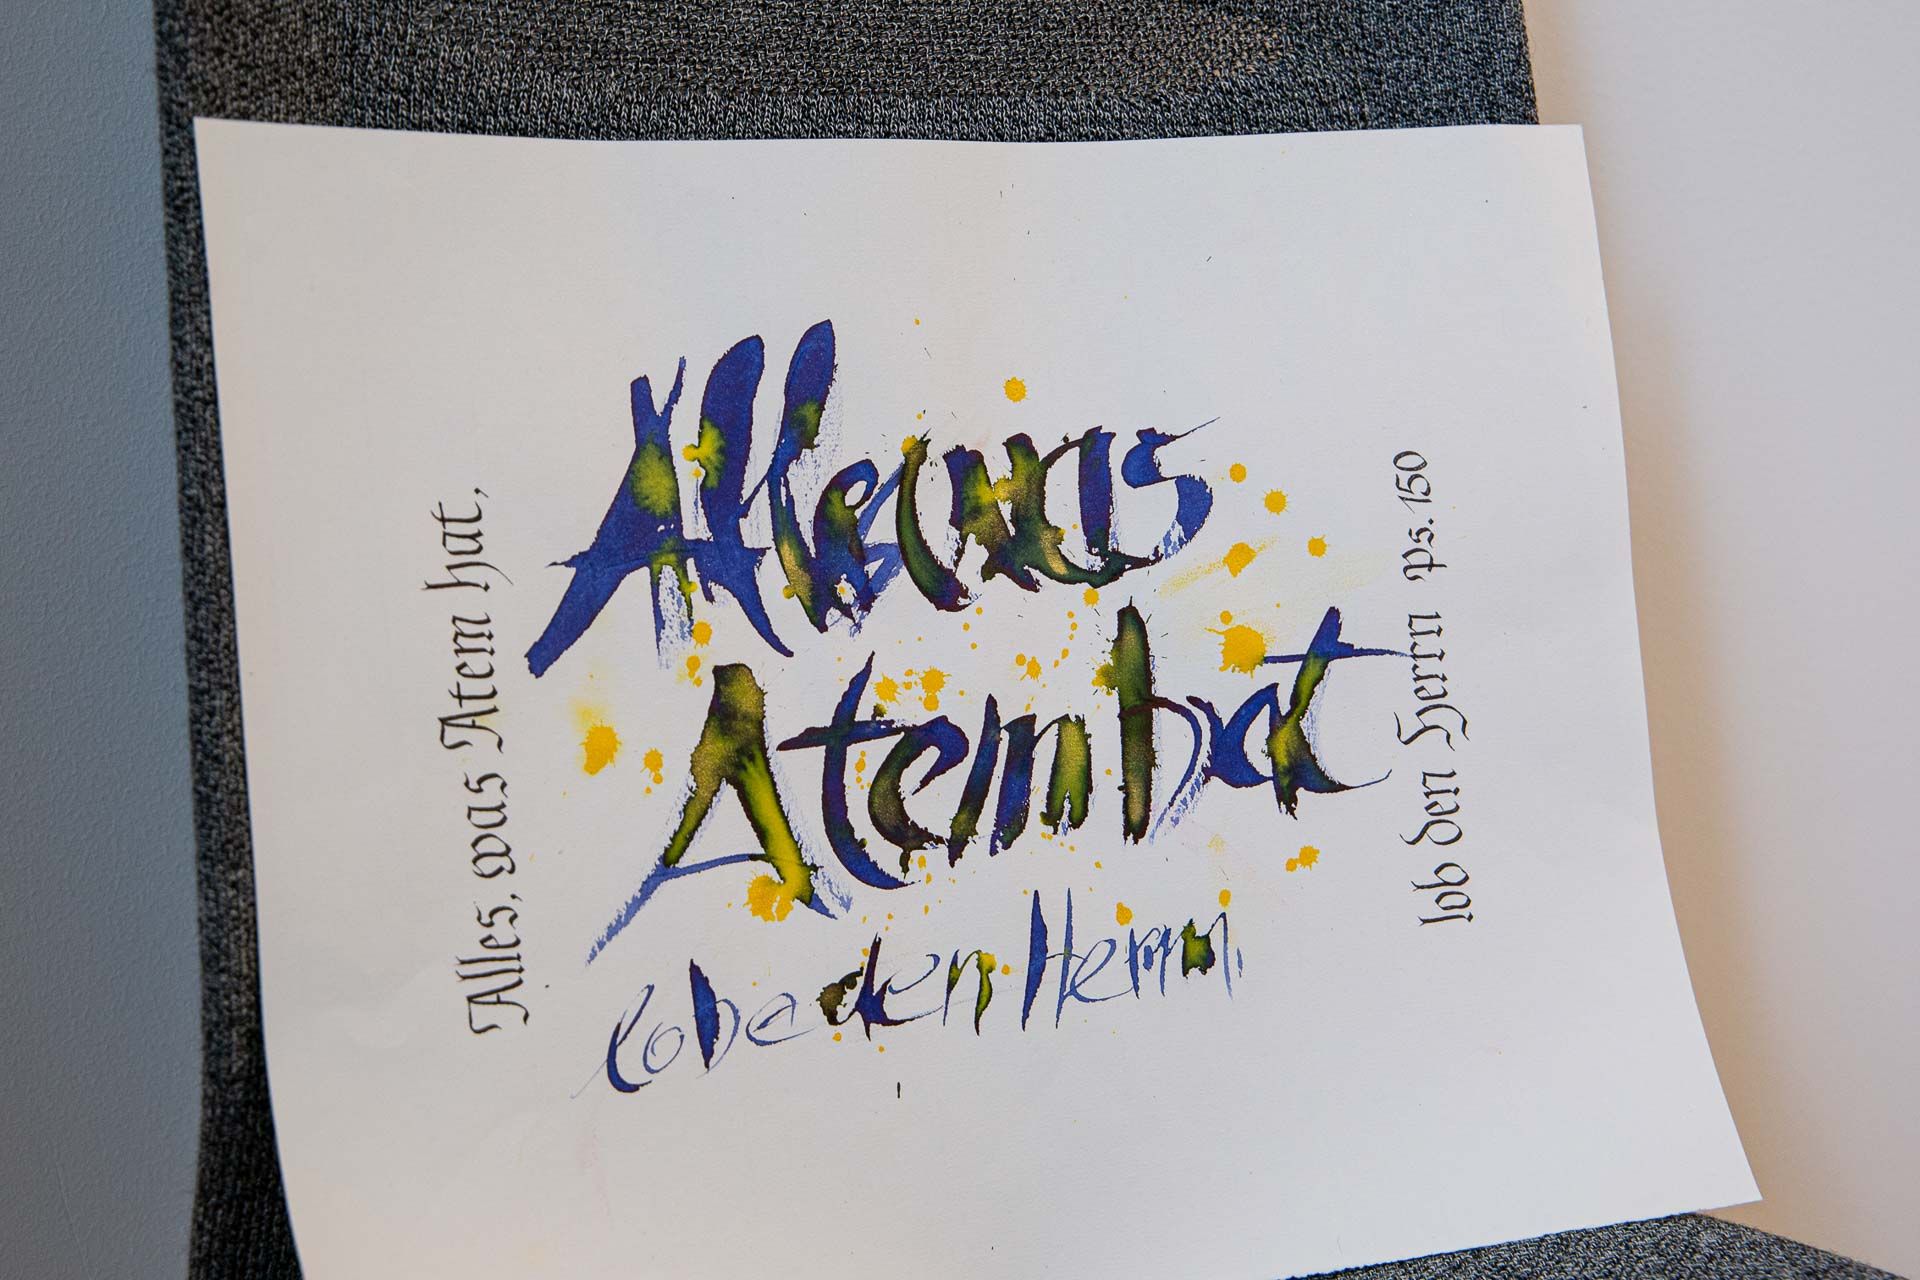 Alles, was Atem hat,
Alles was
Atem hat
lobe den Herrn.
lob den Herrn Ps. 150